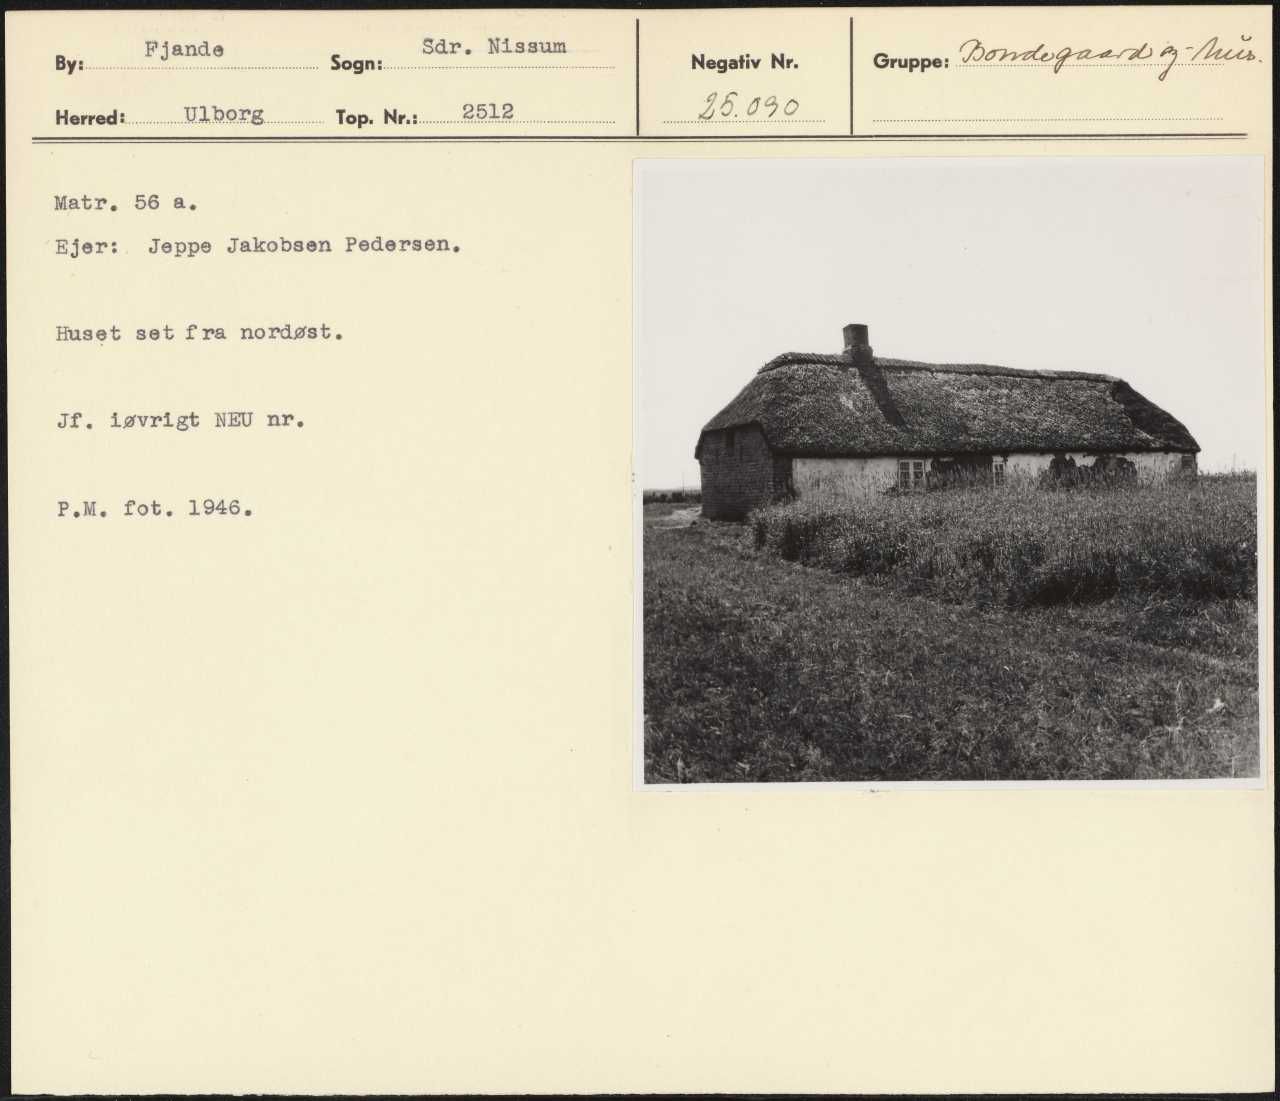 By: Fjande Sogn: Sdr. Nissum Negativ Nr. Gruppe: Bondegaard og -hus.
Herred: Ulborg Top. Nr.: 2512 25.090
Matr. 56 a.
Ejer: Jeppe Jakobsen Pedersen.
Huset set fra nordøst.
Jf. iøvrigt NEU nr.
P.M. fot. 1946.